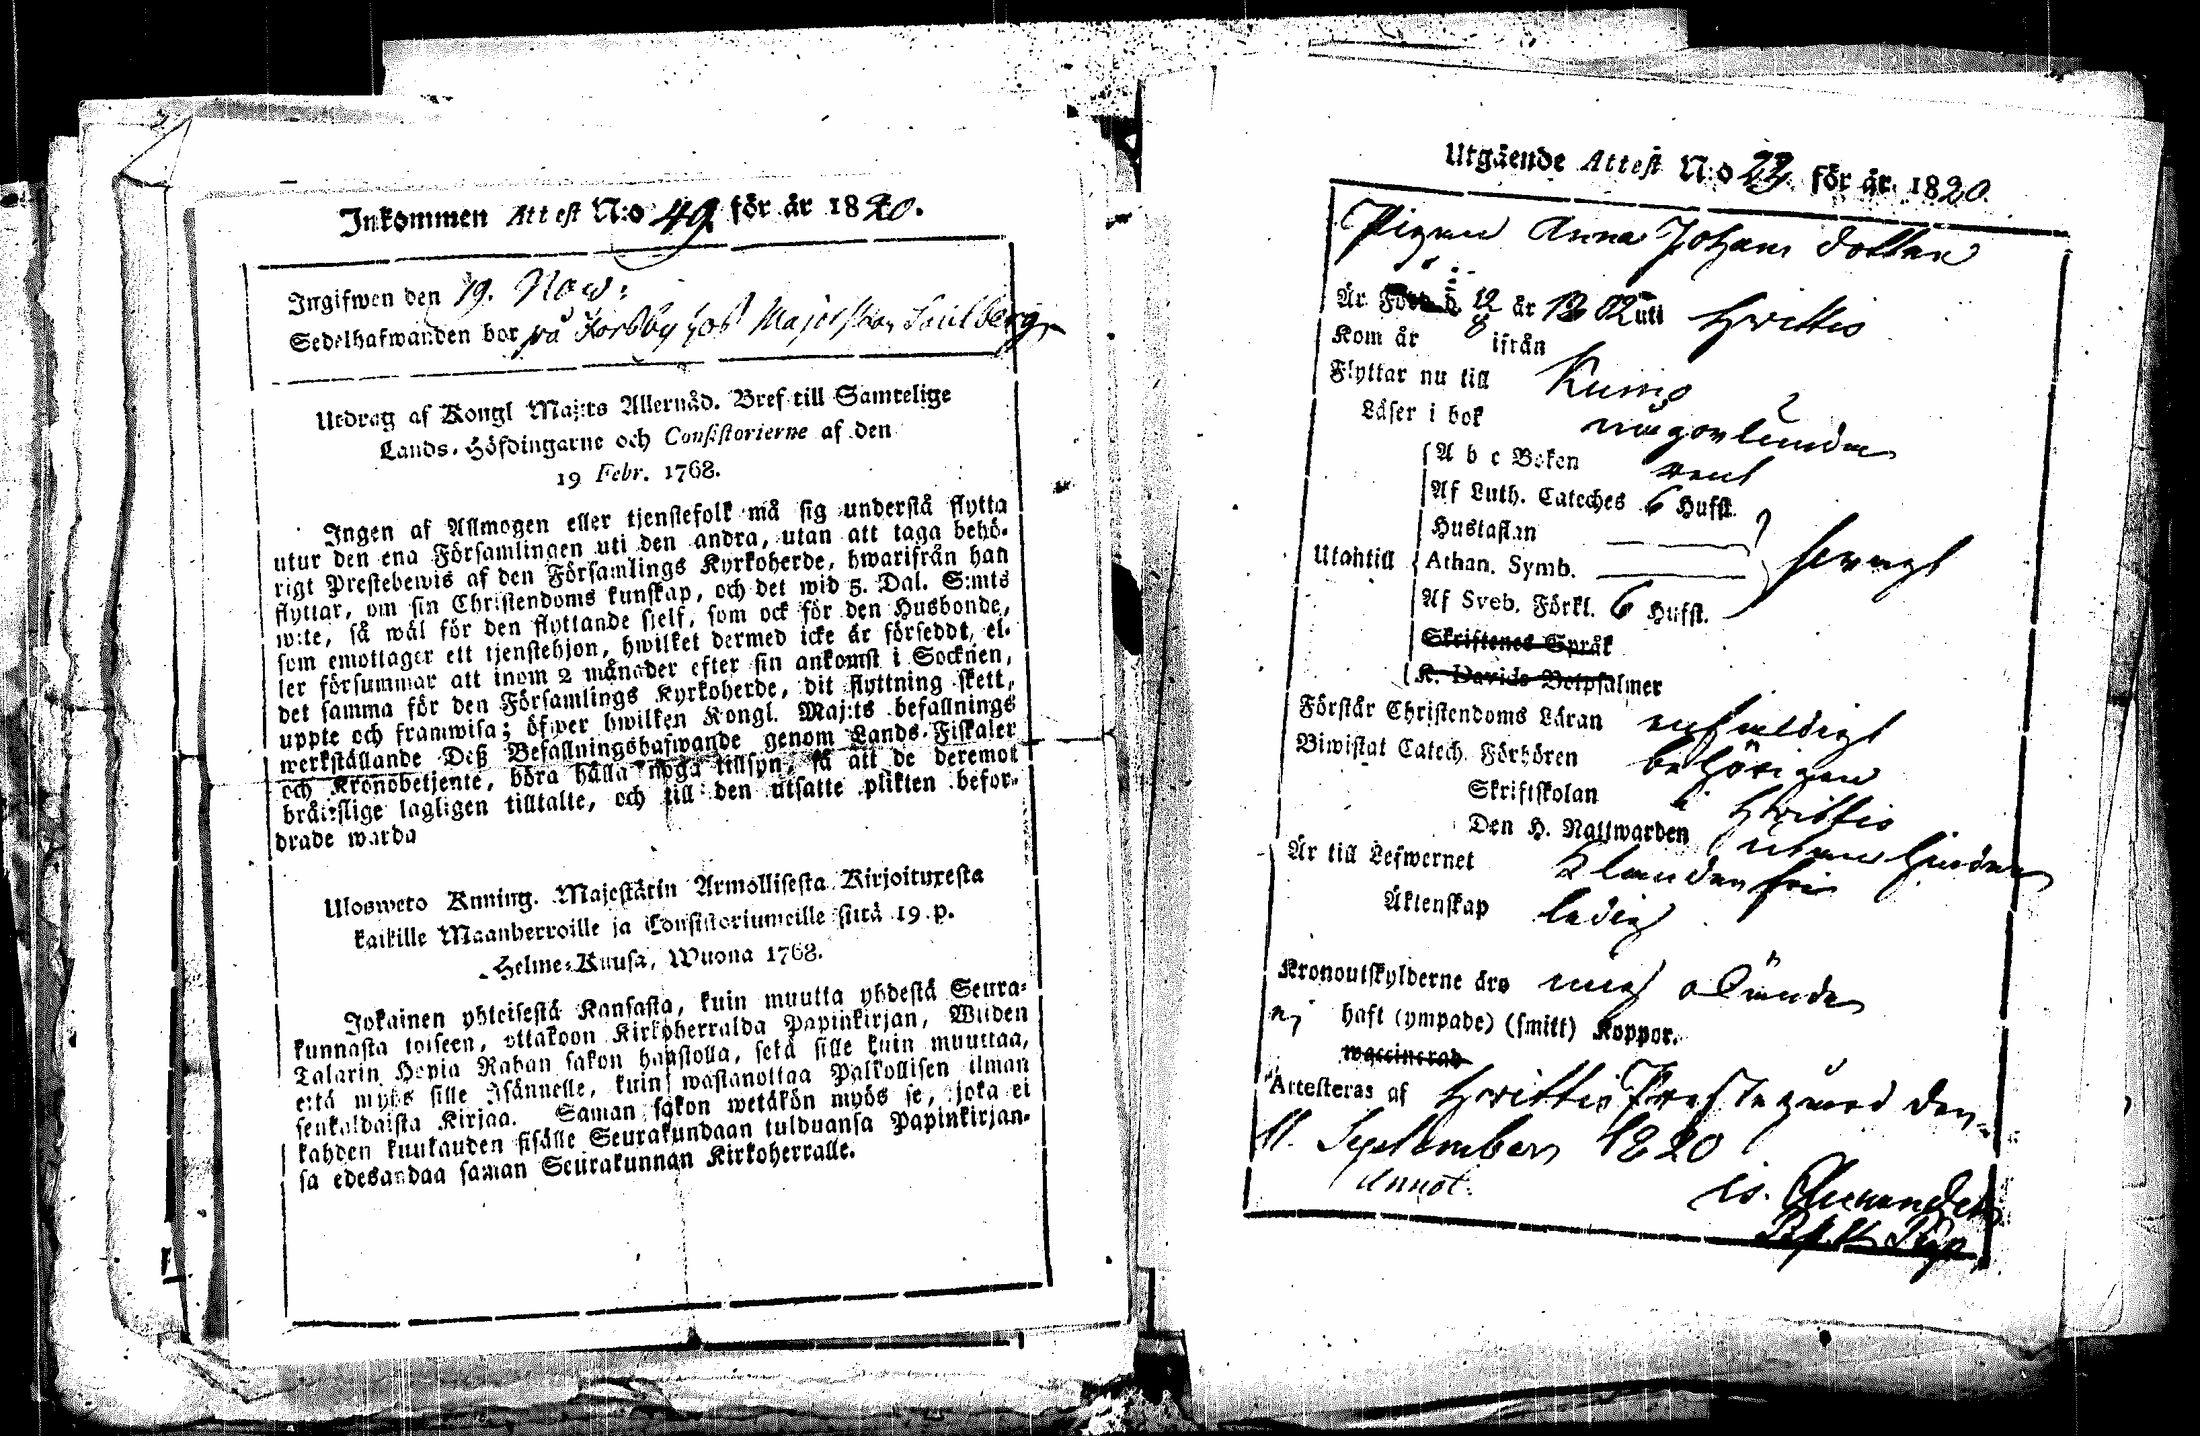 Inkommen Attest N:o 49 för år 1820.
Ingifwen den 19. Now:
Sedelhafwanden bor på Forsby hos Majorskan
Utdrag af Kongl Maj:ts Allernåd. Bref till Samtelige
Lands-Höfdingarne och Consistorierne af den
19 Febr. 1768.
Ingen af Allmogen eller tjenstefolk må sig understå flytta
utur den ena Församlingen uti den andra, utan att taga behö-
rigt Prestebewis af den Församlings Kyrkoherde, hwarifrån han
flyttar, om sin Christendoms kunskap, och det wid 5. Dal. S:mts
wite, så wäl för den flyttande sjelf, som ock för den Husbonde,
som emottager ett tjenstehjon, hwilket dermed icke är förseddt, el-
ler försummar att inom 2 månader efter sin ankomst i Socknen,
det samma för den Församlings Kyrkoherde, dit flyttning skett,
uppte och framwisa; öfwer hwilken Kongl. Maj:ts befallnings
werkställande Deß Befallningshafwande genom Lands-Fiskaler
och Kronobetjente, böra hålla noga tillsyn, så att de deremot
bråtslige lagligen tilltalte, och till den utsatte plikten befor-
drade warda
Ulosweto Kuning. Majestätin Armollisesta Kirjoituxesta
kaikille Maanherroille ja Consistoriumeille siitä 19 p.
Helme-Kuusa, Wuona 1768.
Jokainen yhteisestä Kansasta, kuin muutta yhdestä Seura-
kunnasta toiseen, ottakoon Kirkoherralda Papinkirjan, Wiiden
Talarin Hopia Rahan sakon haastolla, sekä sille kuin muuttaa,
että myös sille Isännelle, kuin wastanottaa Palkollisen ilman
senkaldaista Kirjaa. Saman sakon wetäkön myös se, joka ei
kahden kuukauden sisälle Seurakundaan tulduansa Papinkirjan-
sa edesandaa saman Seurakunnan Kirkoherralle.
Utgående Attest N:o 23 för år 1820.
Pigan Anna Johans dotter
Är Född d. 12/8 år uti Hvittis
Kom år ifrån
Flyttar nu till Kumo
Läser i bok någorlunda
A b c Boken rent
Af Luth. Cateches 6 Hufst.
Hustaflan
Utantill Athan. Symb. svagt
Af Sveb. Förkl. 6 Hufst.
Skriftenes Språk
K. Davids Botpsalmer
Förstår Christendoms Läran enfaldigt
Biwistat Catech. Förhören behörigen
Skriftskolan i Hvittis
Den H. Nattwarden utan hinder
Är till Lefwernet Klanderfri
Äktenskap ledig
Kronoutskylderne äro
ej haft (ympade) (smitt) Koppor.
waccinerad
Attesteras af Hvittis Prestegård den
11. September 1820
Annot.